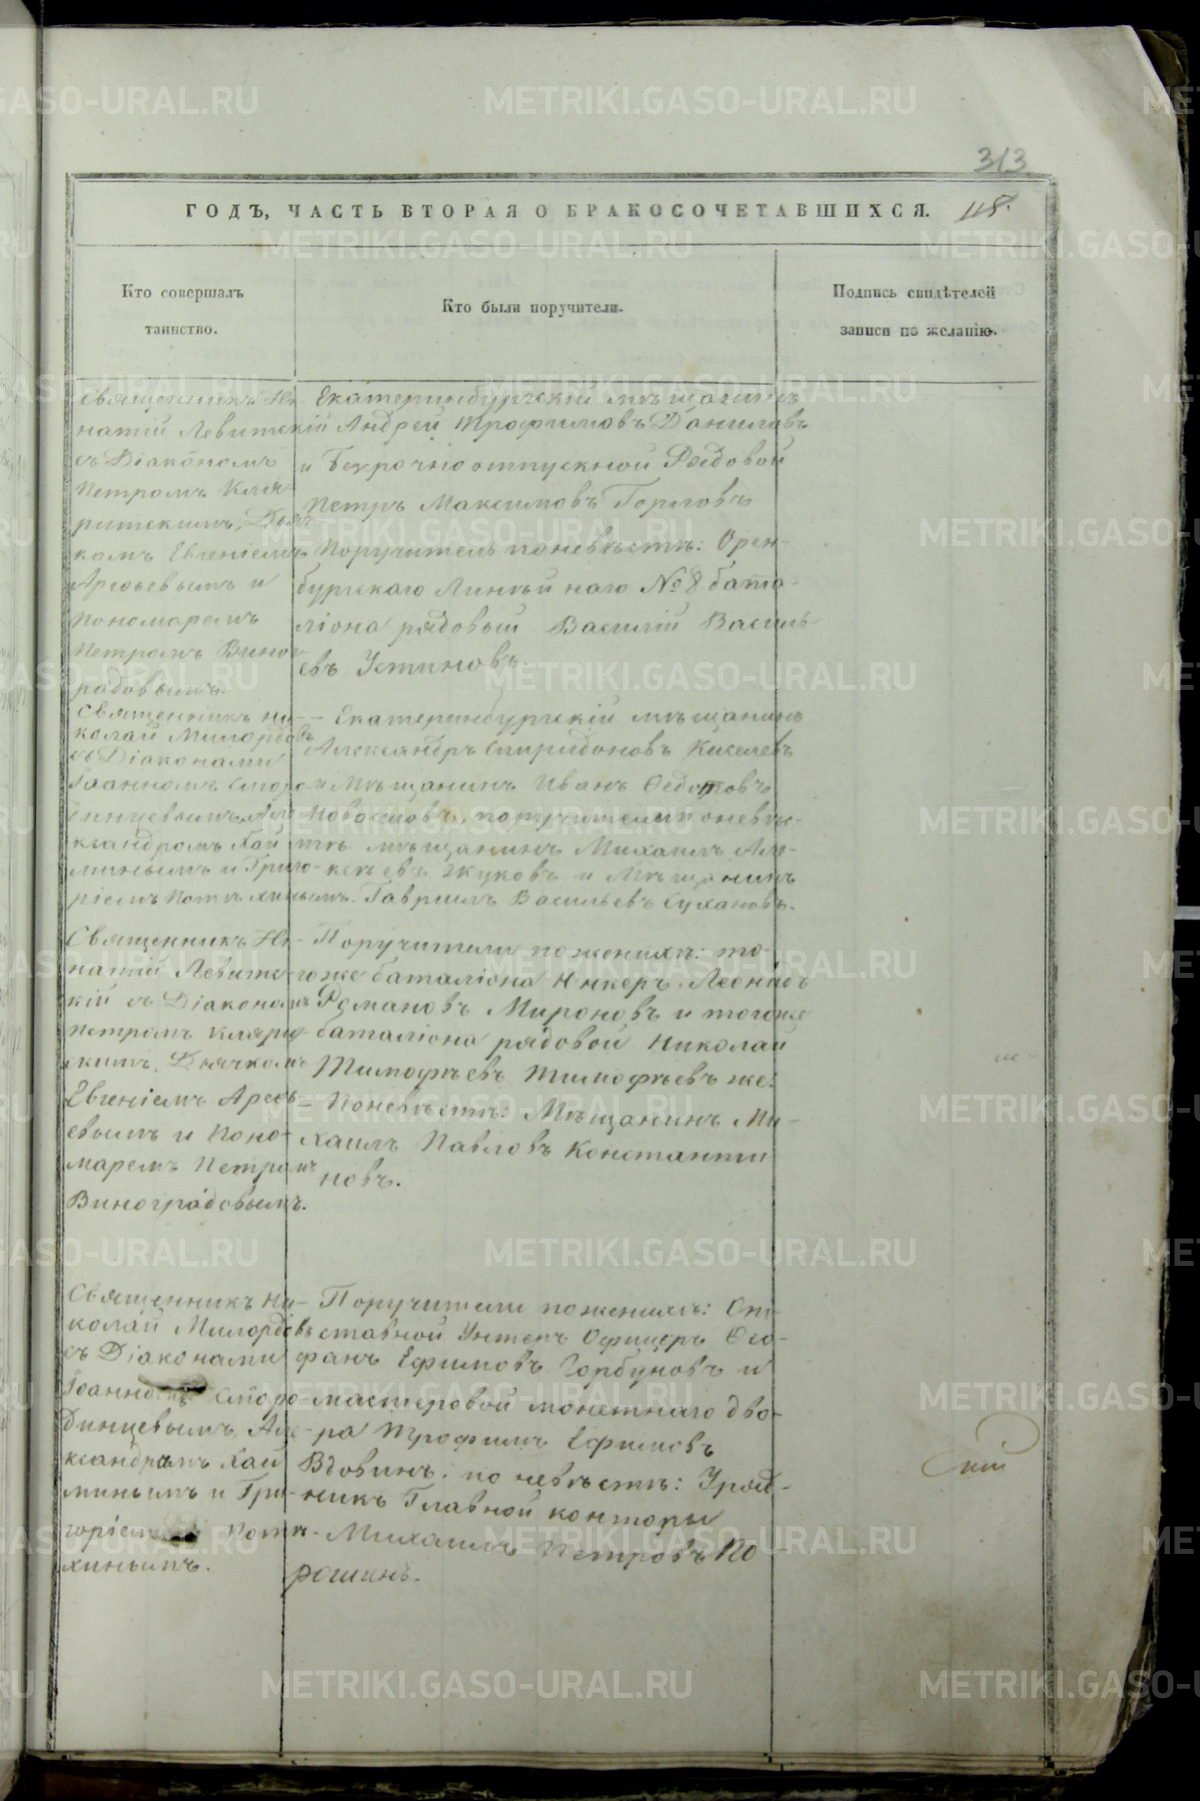 313
ГОДЪ, ЧАСТЬ ВТОРАЯ О БРАКОСОЧЕТАВШИХСЯ.
118.
Кто совершалъ
таинство.
Кто были поручители.
Подпись свидѣтелей
записи по желанію.
Священникъ Иг-
натій Левитскій
съ Діакономъ
Петромъ Кля-
ритскимъ, Дьяч-
комъ Евгеніемъ
Арефьевымъ и
пономаремъ
Петромъ Виног-
радовымъ.
Екатеринбургскій мѣщанинъ
Андрей Трофимовъ Даниловъ
и Безсрочноотпускной Рядовой
Петръ Максимовъ Горловъ
Поручитель поневѣстѣ: Орен-
бургскаго Линѣйнаго № 8 бата-
ліона рядовый Василій Василь-
евъ Устиновъ.
Священникъ Ни-
колай Милордовъ
съ Діаконами
Іоанномъ Сморо-
динцевымъ, Але-
ксандромъ Хай
минымъ и Григо-
ріемъ Потѣхинымъ.
Екатеринбургскій мѣщанинъ
Александръ Спиридоновъ Киселевъ
и Мѣщанинъ Иванъ Федотовъ
Новоселовъ, поручители поневѣс-
тѣ мѣщанинъ Михаилъ Але-
ксѣевъ Жуковъ и Мѣщанинъ
Гавриилъ Васильевъ Сухановъ.
Священникъ Иг-
натій Левитс-
кій съ Діакономъ
Петромъ Кляри
скимъ, Дьячкомъ
Евгеніемъ Арефь-
евымъ и Поно-
маремъ Петромъ
Виноградовымъ.
Поручители пожениху: то-
гоже баталіона Юнкеръ Леонидъ
Романовъ Мироновъ и тогоже
баталіона рядовой Николай
Тимофѣевъ Тимофѣевъ же:
Поневѣстѣ: Мѣщанинъ Ми-
хаилъ Павловъ Константи
новъ.
Священникъ Ни-
колай Милордовъ
съ Діаконами
Іоанномъ Сморо
динцевымъ, Але-
ксандромъ Хай
минымъ и Гри-
горіемъ Потѣ-
хинымъ.
Поручители пожениху: От
ставной Унтеръ Офицеръ Фео-
фанъ Ефимовъ Горбуновъ и
мастеровой монетнаго дво-
ра Трофимъ Ефимовъ
Вдовинъ: по невѣстѣ: Уряд-
никъ Главной конторы
Михаилъ Петровъ По
рошинъ.
METRIKI.GASO-URAL.RU